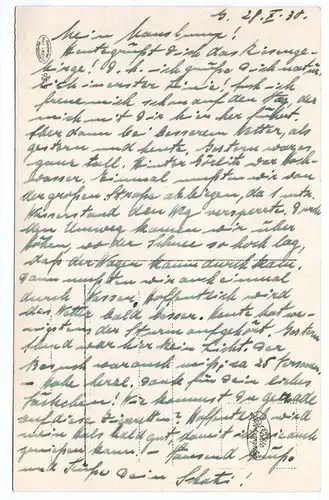 S. 28. X. 30.
Mein Mauslump!
Heute grüßt Dich das Riesenge-
birge! D. h. ich grüße Dich natür-
lich in erster Linie! Und ich
freue mich schon auf den Tag der
mich mit Dir hier her führt.
Aber dann bei besserem Wetter, als
gestern und heute. Gestern war es
ganz toll. Hinter Görlitz war Hoch-
wasser. Einmal mußten wir von
der großen Straße abbiegen, da 1 mtr.
Wasserstand den Weg versperrte. Durch
den Umweg kamen wir über
Höhen, wo der Schnee so hoch lag,
daß der Wagen kaum durch kam.
Dann mußten wir auch einmal
durch Wasser. Hoffentlich wird
das Wetter bald besser. Heute hat we-
nigstens der Sturm aufgehört. Gestern
Abend war hier kein Licht. Der
Besuch war auch mies, ca 25 Personen
- Habe Dank für Dein liebes
Päckchen! Wie kommst Du gerade
auf diese Zigaretten? Hoffentlich wird
mein Hals bald gut, damit ich sie auch
genießen kann! - Tausend Grüße
und Küsse Dein Schatz!